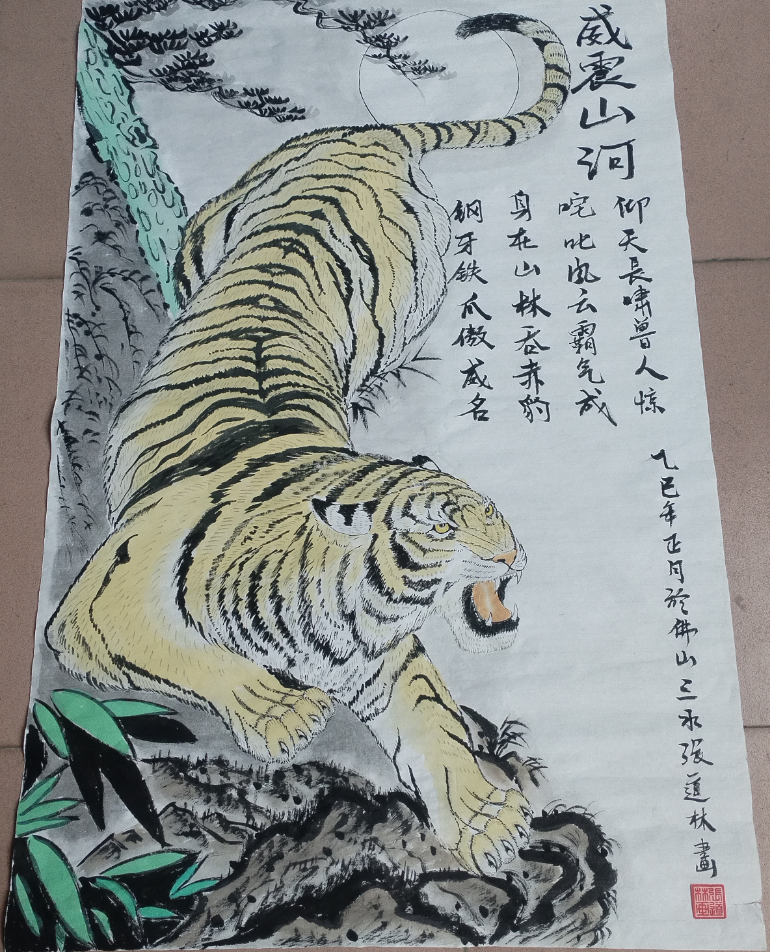 威震山河
仰天長嘯兽人惊
咤叱风云霸气成
身在山林吞赤豹
鋼牙鉄爪傲威名
乙巳年正月於佛山三水張道林畫